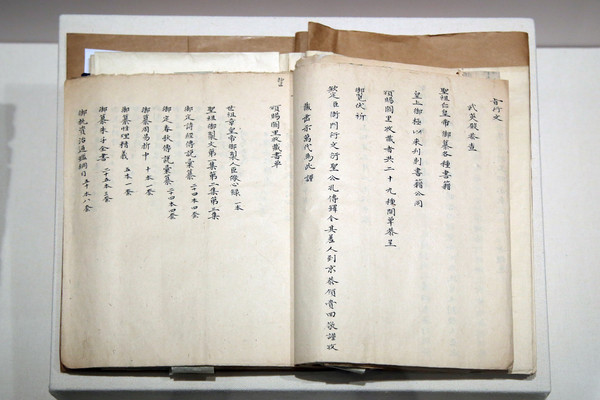 咨行文
武英殿卷查
聖祖仁皇帝御纂各種書籍
皇上御極以來刊刻書籍公同
頒賜闕里收藏者共二十九種開單恭呈
御覽伏祈
欽定臣衙門行文衍聖公孔傳鐸令其差人到京恭領賫回敬謹收
藏書示萬代為此謹
頒賜闕里收藏書單
世祖章皇帝御製人臣儆心錄 一本
聖祖御製文第一集第二集第三集
御定詩經傳說彙纂 二十四本四套
御定春秋傳說彙纂 二十四本四套
御纂周易折中 十本一套
御纂性理精義 五本一套
御纂朱子全書 二十五本三套
御批資治通鑑綱目 五十本八套